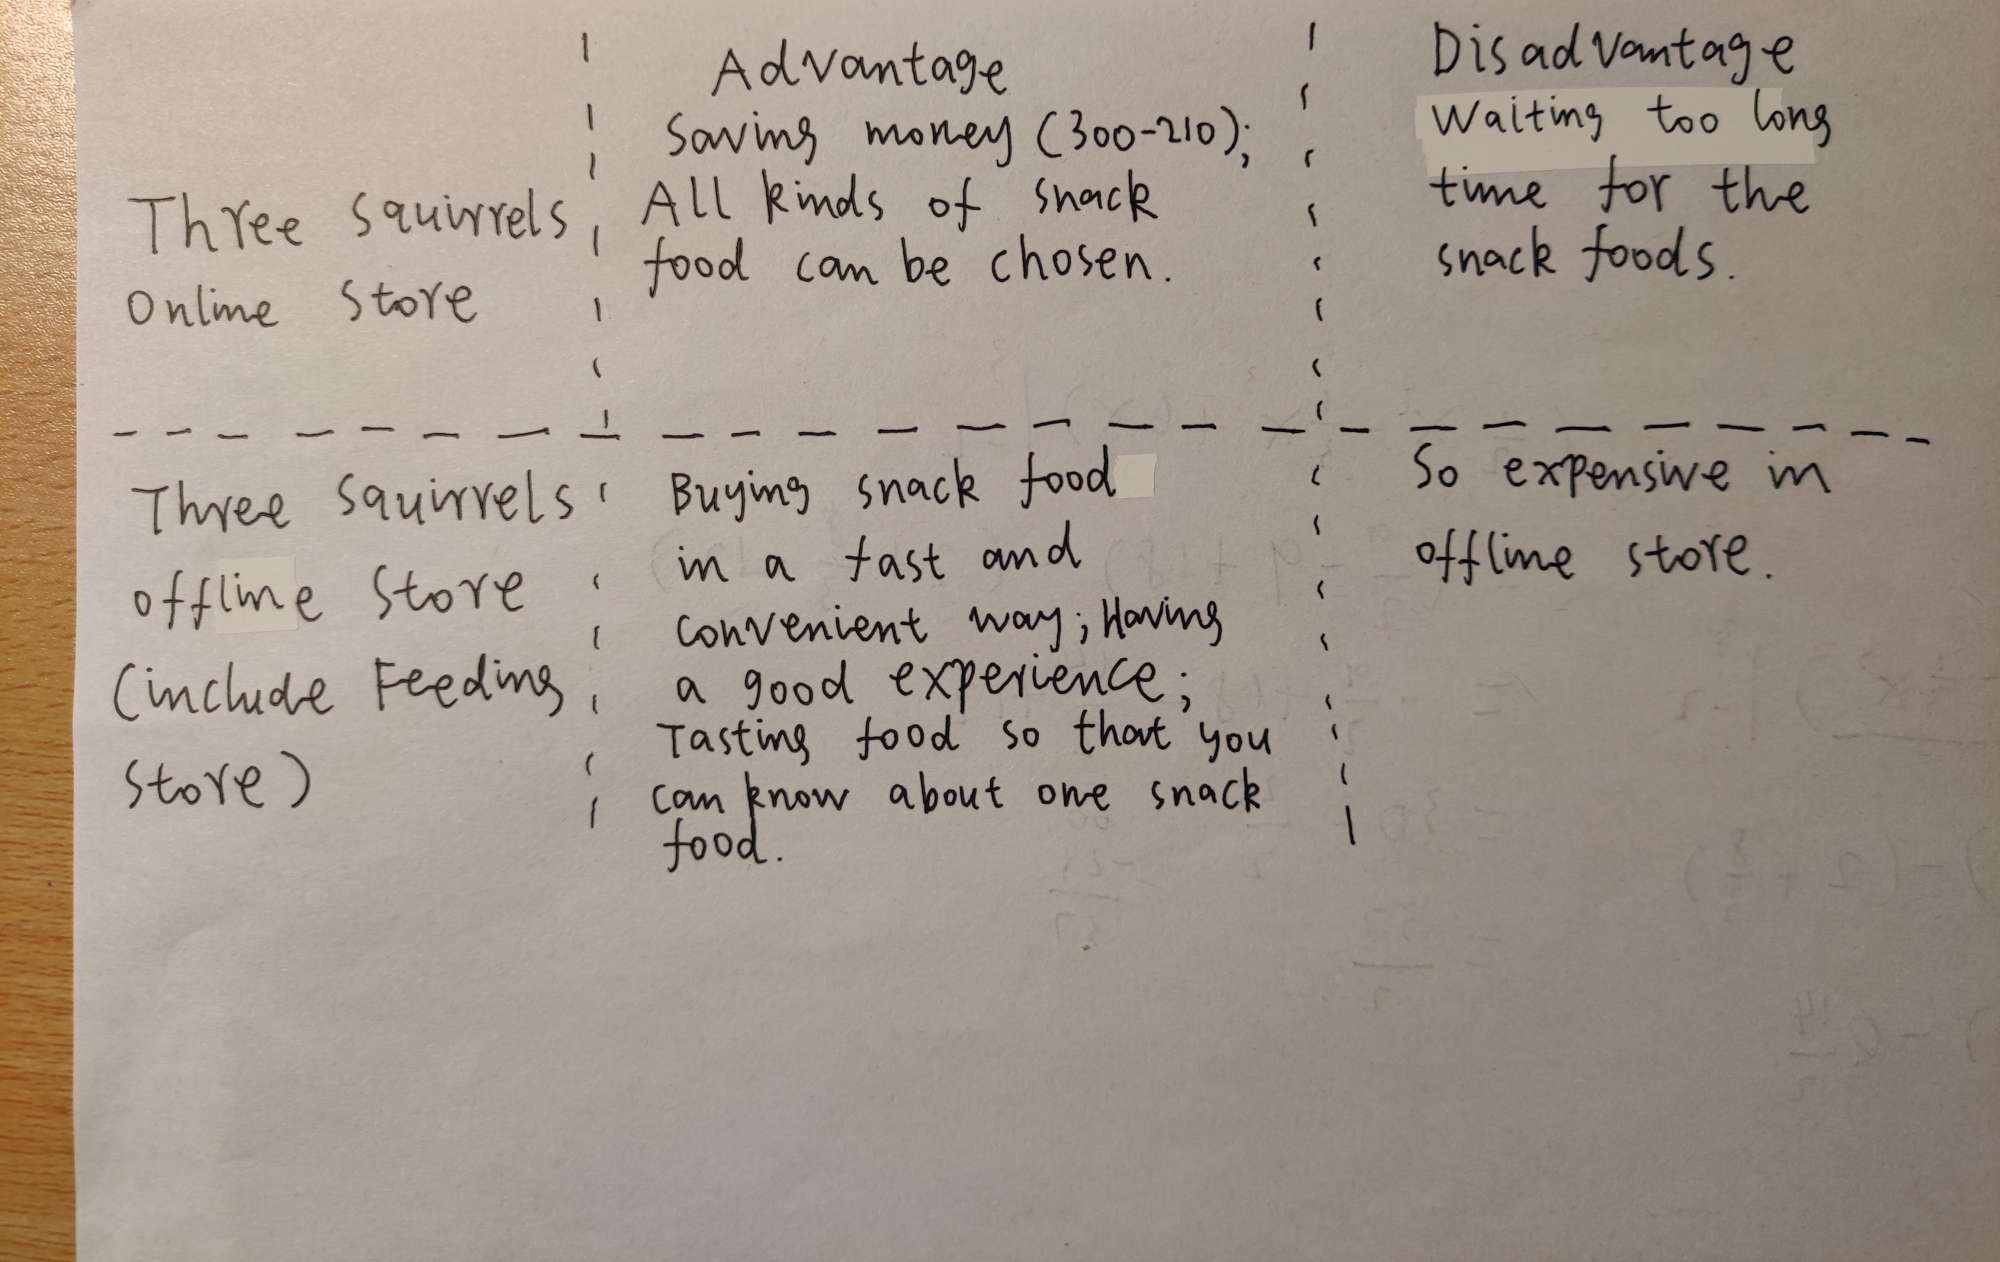 Advantage
Disadvantage
Three squirrels
Online store
Saving money (300-210);
All kinds of snack
food can be chosen.
Waiting too long
time for the
snack foods.
Three squirrels
offline store
(include Feeding
store)
Buying snack food
in a fast and
convenient way; Having
a good experience;
Tasting food so that you
can know about one snack
food.
So expensive in
offline store.